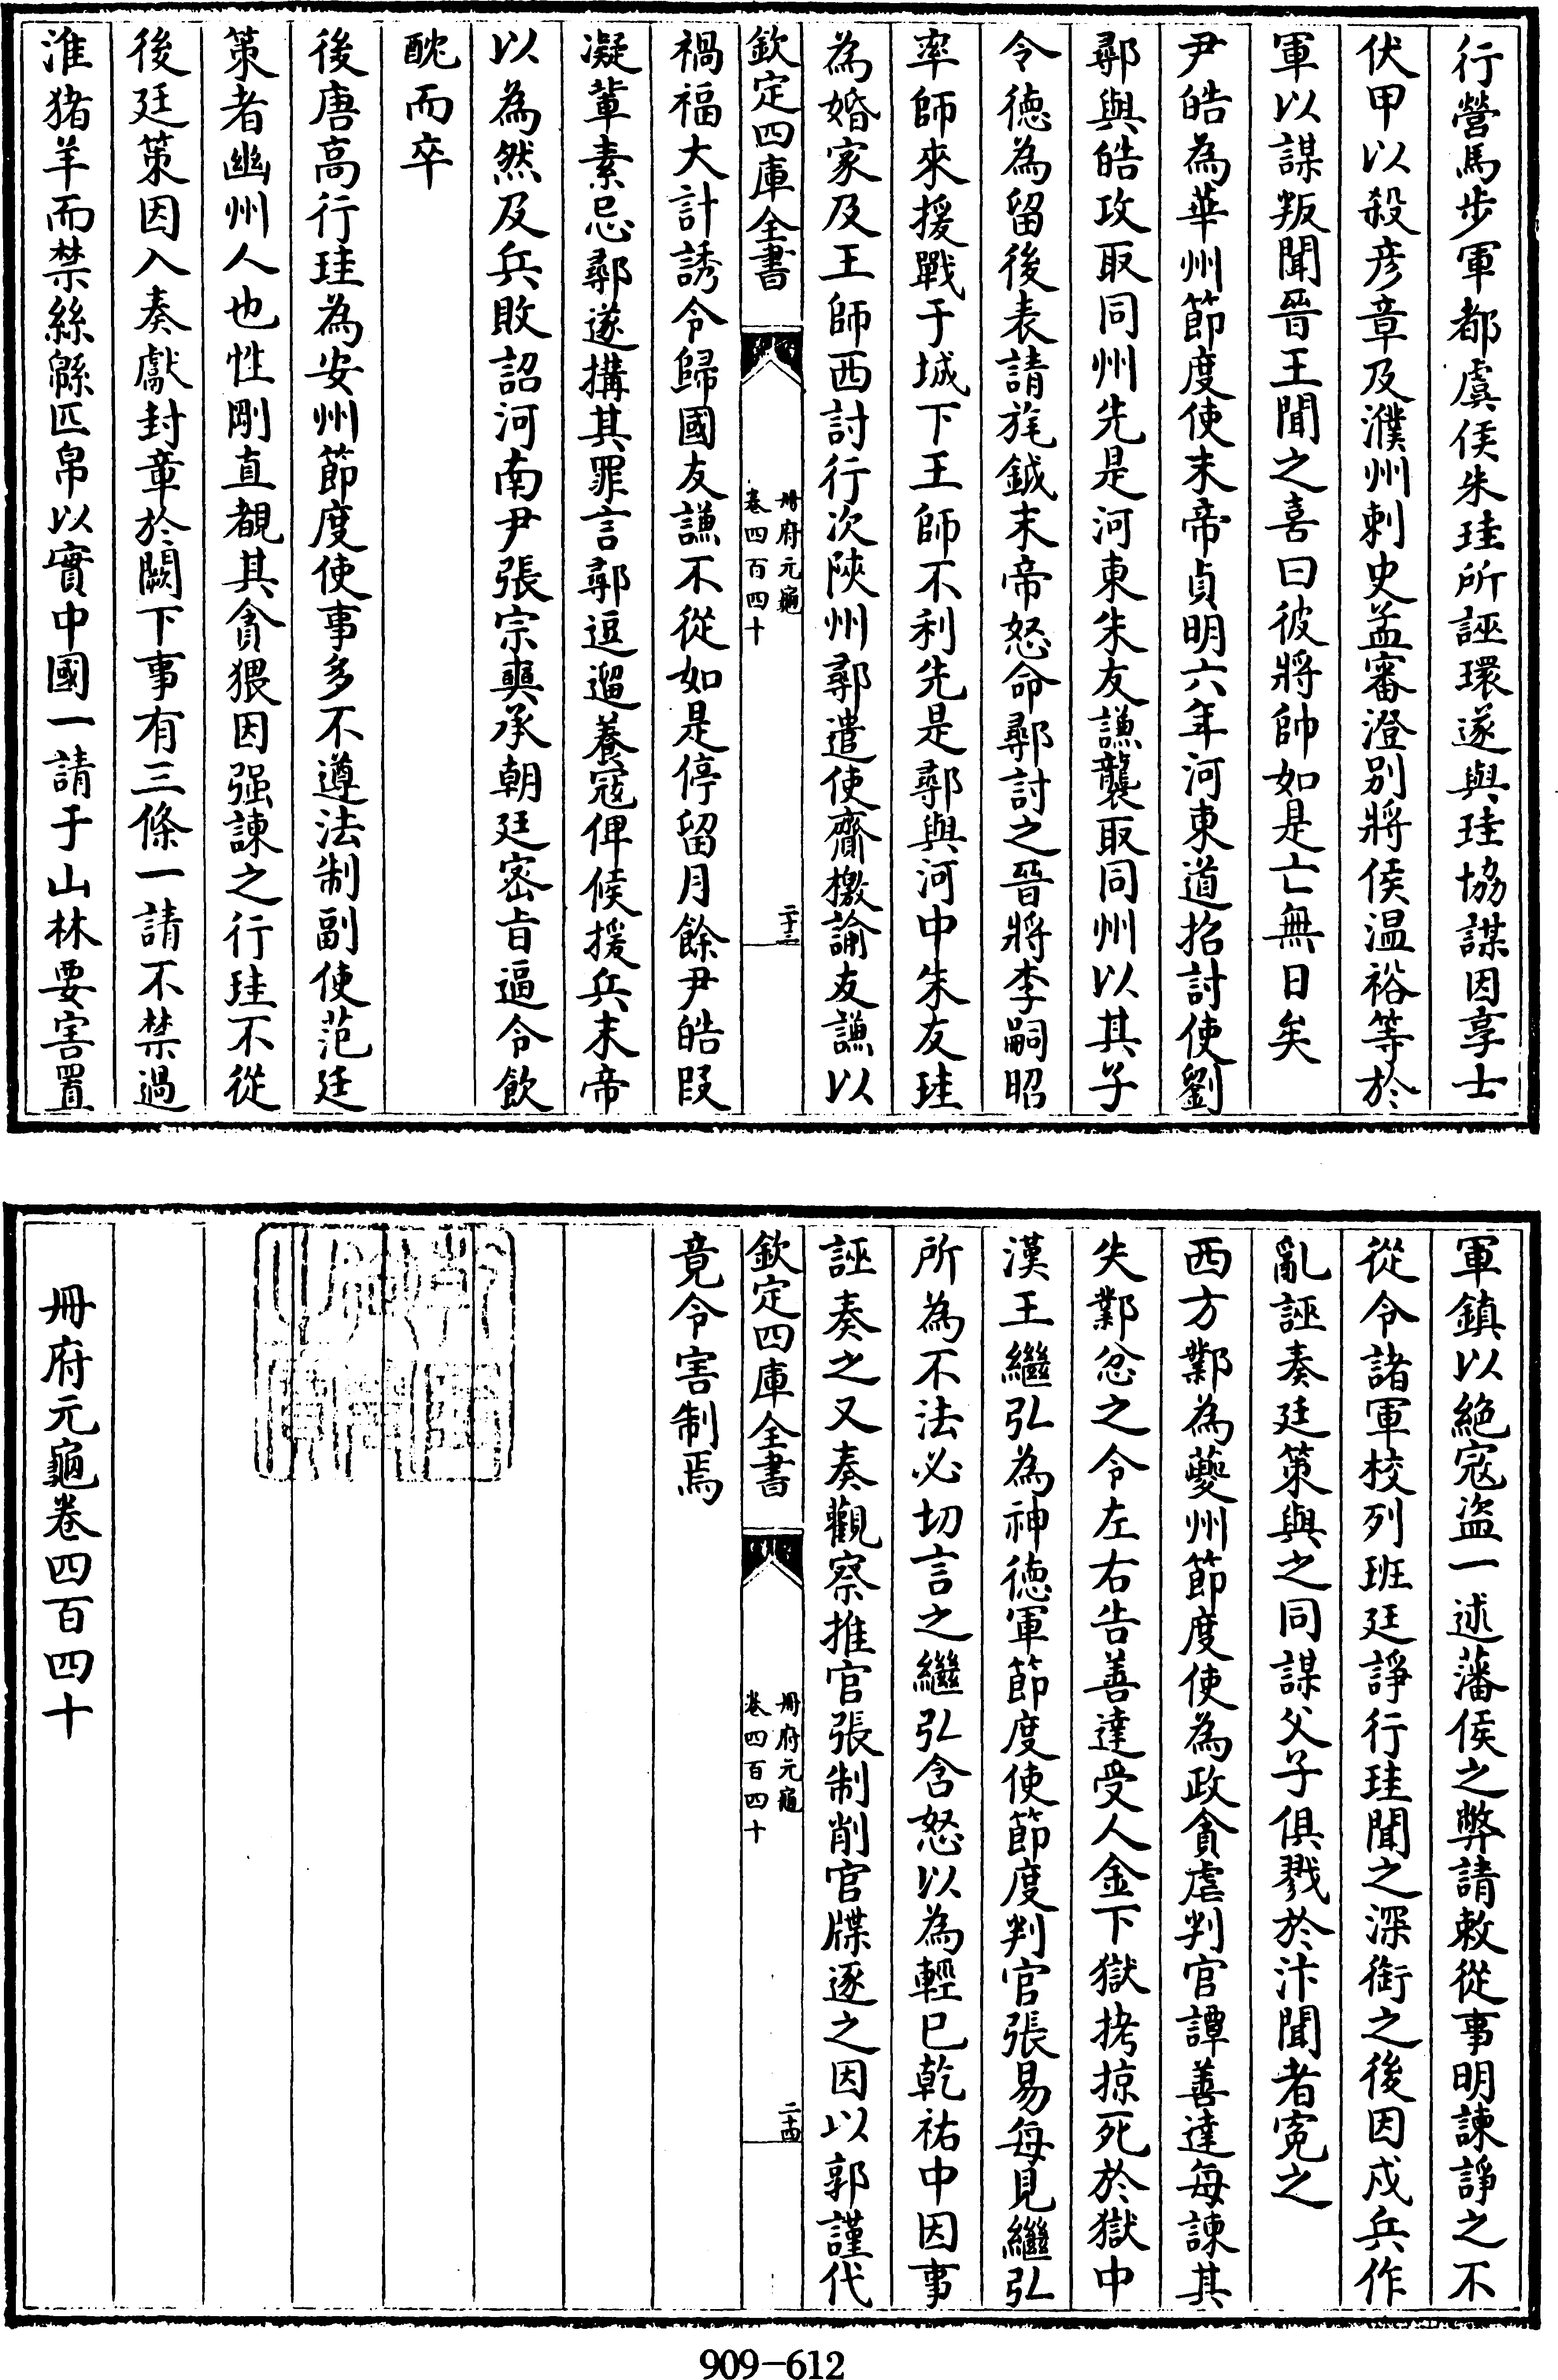 行營馬步軍都虞侯朱珪所誣環遂與珪協謀因享士
伏甲以殺彦章及濮州刺史孟審澄别將侯温裕等於
軍以謀叛聞晉王聞之喜曰彼將帥如是亡無日矣
尹皓為華州節度使末帝貞明六年河東道招討使劉
鄩與皓攻取同州先是河東朱友謙襲取同州以其子
令徳為留後表請旄鉞末帝怒命鄩討之晉將李嗣昭
率師來援戰于城下王師不利先是鄩與河中朱友珪
為婚家及王師西討行次陜州鄩遣使齎檄諭友謙以
欽定四庫全書
冊府元龜
卷四百四十
二十三
禍福大計誘令歸國友謙不從如是停留月餘尹皓段
凝輩素忌鄩遂搆其罪言鄩逗遛養寇俾候援兵末帝
以為然及兵敗詔河南尹張宗奭承朝廷宻旨逼令飲
酖而卒
後唐高行珪為安州節度使事多不遵法制副使范廷
策者幽州人也性剛直覩其貪猥因强諫之行珪不從
後廷策因入奏獻封章於闕下事有三條一請不禁過
淮猪羊而禁絲緜匹帛以實中國一請于山林要害置
軍鎮以絶寇盗一述藩侯之弊請敕從事明諫諍之不
從令諸軍校列班廷諍行珪聞之深銜之後因戍兵作
亂誣奏廷策與之同謀父子俱戮於汴聞者寃之
西方鄴為夔州節度使為政貪虐判官譚善達每諫其
失鄴忿之令左右告善達受人金下獄拷掠死於獄中
漢王繼弘為神徳軍節度使節度判官張易每見繼弘
所為不法必切言之繼弘含怒以為輕已乾祐中因事
誣奏之又奏觀察推官張制削官牒逐之因以郭謹代
欽定四庫全書
冊府元龜
卷四百四十
二十四
竟令害制焉
冊府元龜卷四百四十
909-612